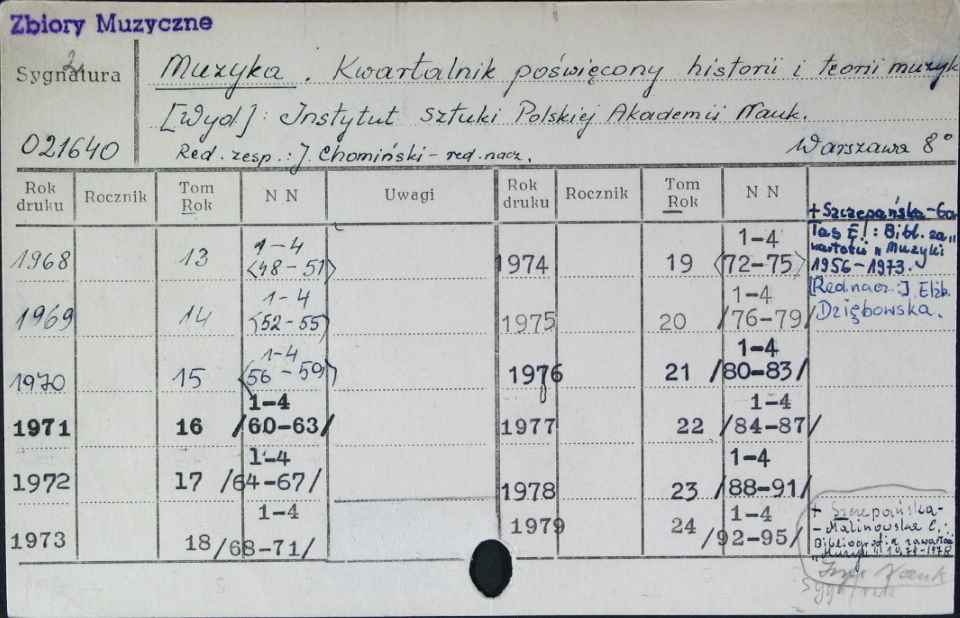 Zbiory Muzyczne
Sygnatura
2
Muzyka. Kwartalnik poświęcony historii i teorii muzyk
[Wyd]: Instytut Sztuki Polskiej Akademii Nauk.
021640
Red. zesp.: J. Chomiński - red. nacz.
Warszawa 8°
Rok druku Rocznik Tom Rok N N Uwagi Rok druku Rocznik Tom Rok N N
1968 13 1-4 <48-51>
1969 14 1-4 <52-55>
1970 15 1-4 <56-59>
1971 16 1-4 /60-63/
1972 17 1-4 /64-67/
1973 18 1-4 /68-71/
1974 19 1-4 <72-75>
1975 20 1-4 /76-79/
1976 21 1-4 /80-83/
1977 22 1-4 /84-87/
1978 23 1-4 /88-91/
1979 24 1-4 /92-95/
+ Szczepańska-Ga
Tas E!: Bibl. za"
wartości "Muzyki
1956-1973.
[Red.nacz.:] Elżb.
Dziębowska.
+ Szczepańska-
-Malinowska E.:
Bibliografia zawartości
"Muzyki"